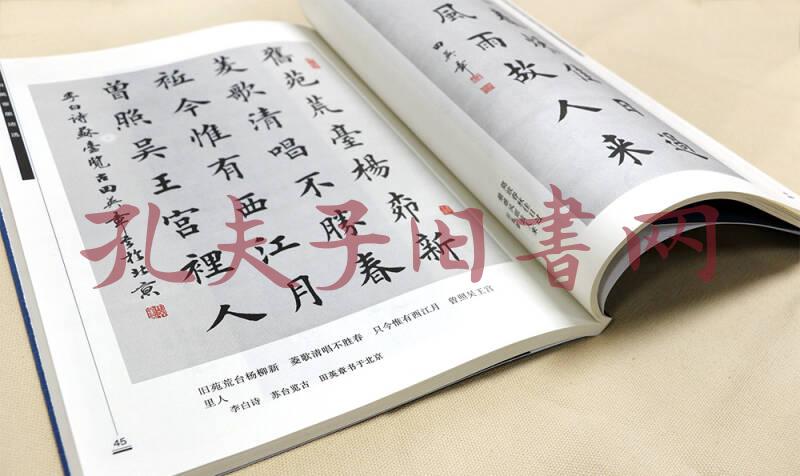 舊苑荒臺楊栁新
菱歌清唱不勝春
祗今惟有西江月
曾照吴王宫裡人
李白诗蘇臺览古田英章书於北京
旧苑荒台杨柳新 菱歌清唱不胜春 只今惟有西江月 曾照吴王宫
里人
李白诗 苏台览古 田英章书于北京
45
風雨故人来
田英章
孔夫子旧書网